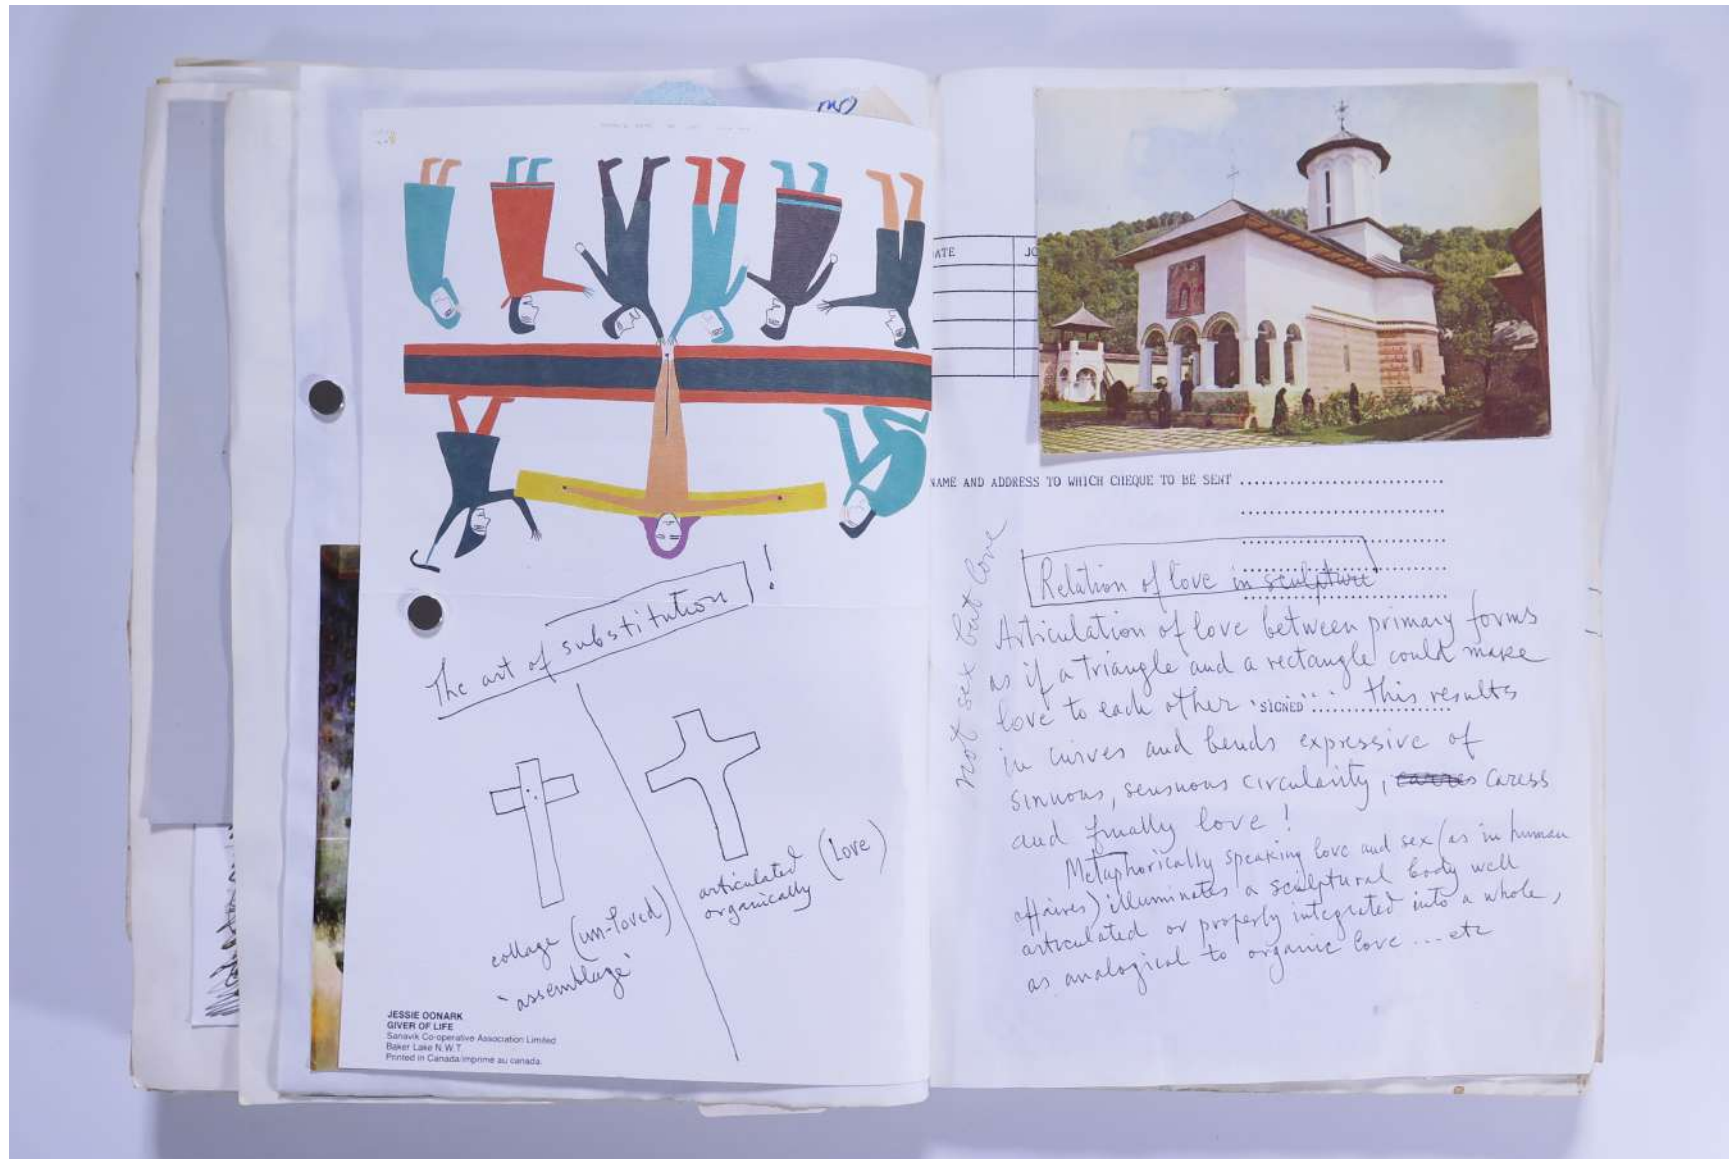 The art of substitution!
collage (un-loved)
'assemblage'
articulated (Love)
organically
JESSIE OONARK
GIVER OF LIFE
Sanavik Co-operative Association Limited
Baker Lake N.W.T.
Printed in Canada/imprimé au canada.
DATE JO
NAME AND ADDRESS TO WHICH CHEQUE TO BE SENT
not sex but love
Relation of love in sculpture
Articulation of love between primary forms
as if a triangle and a rectangle could make
love to each other. SIGNED this results
in curves and bends expressive of
sinuous, sensuous circularity, caress
and finally love!
Metaphorically speaking love and sex (as in human
affaires) illuminates a sculptural body well
articulated or properly integrated into a whole,
as analogical to organic love ... etc